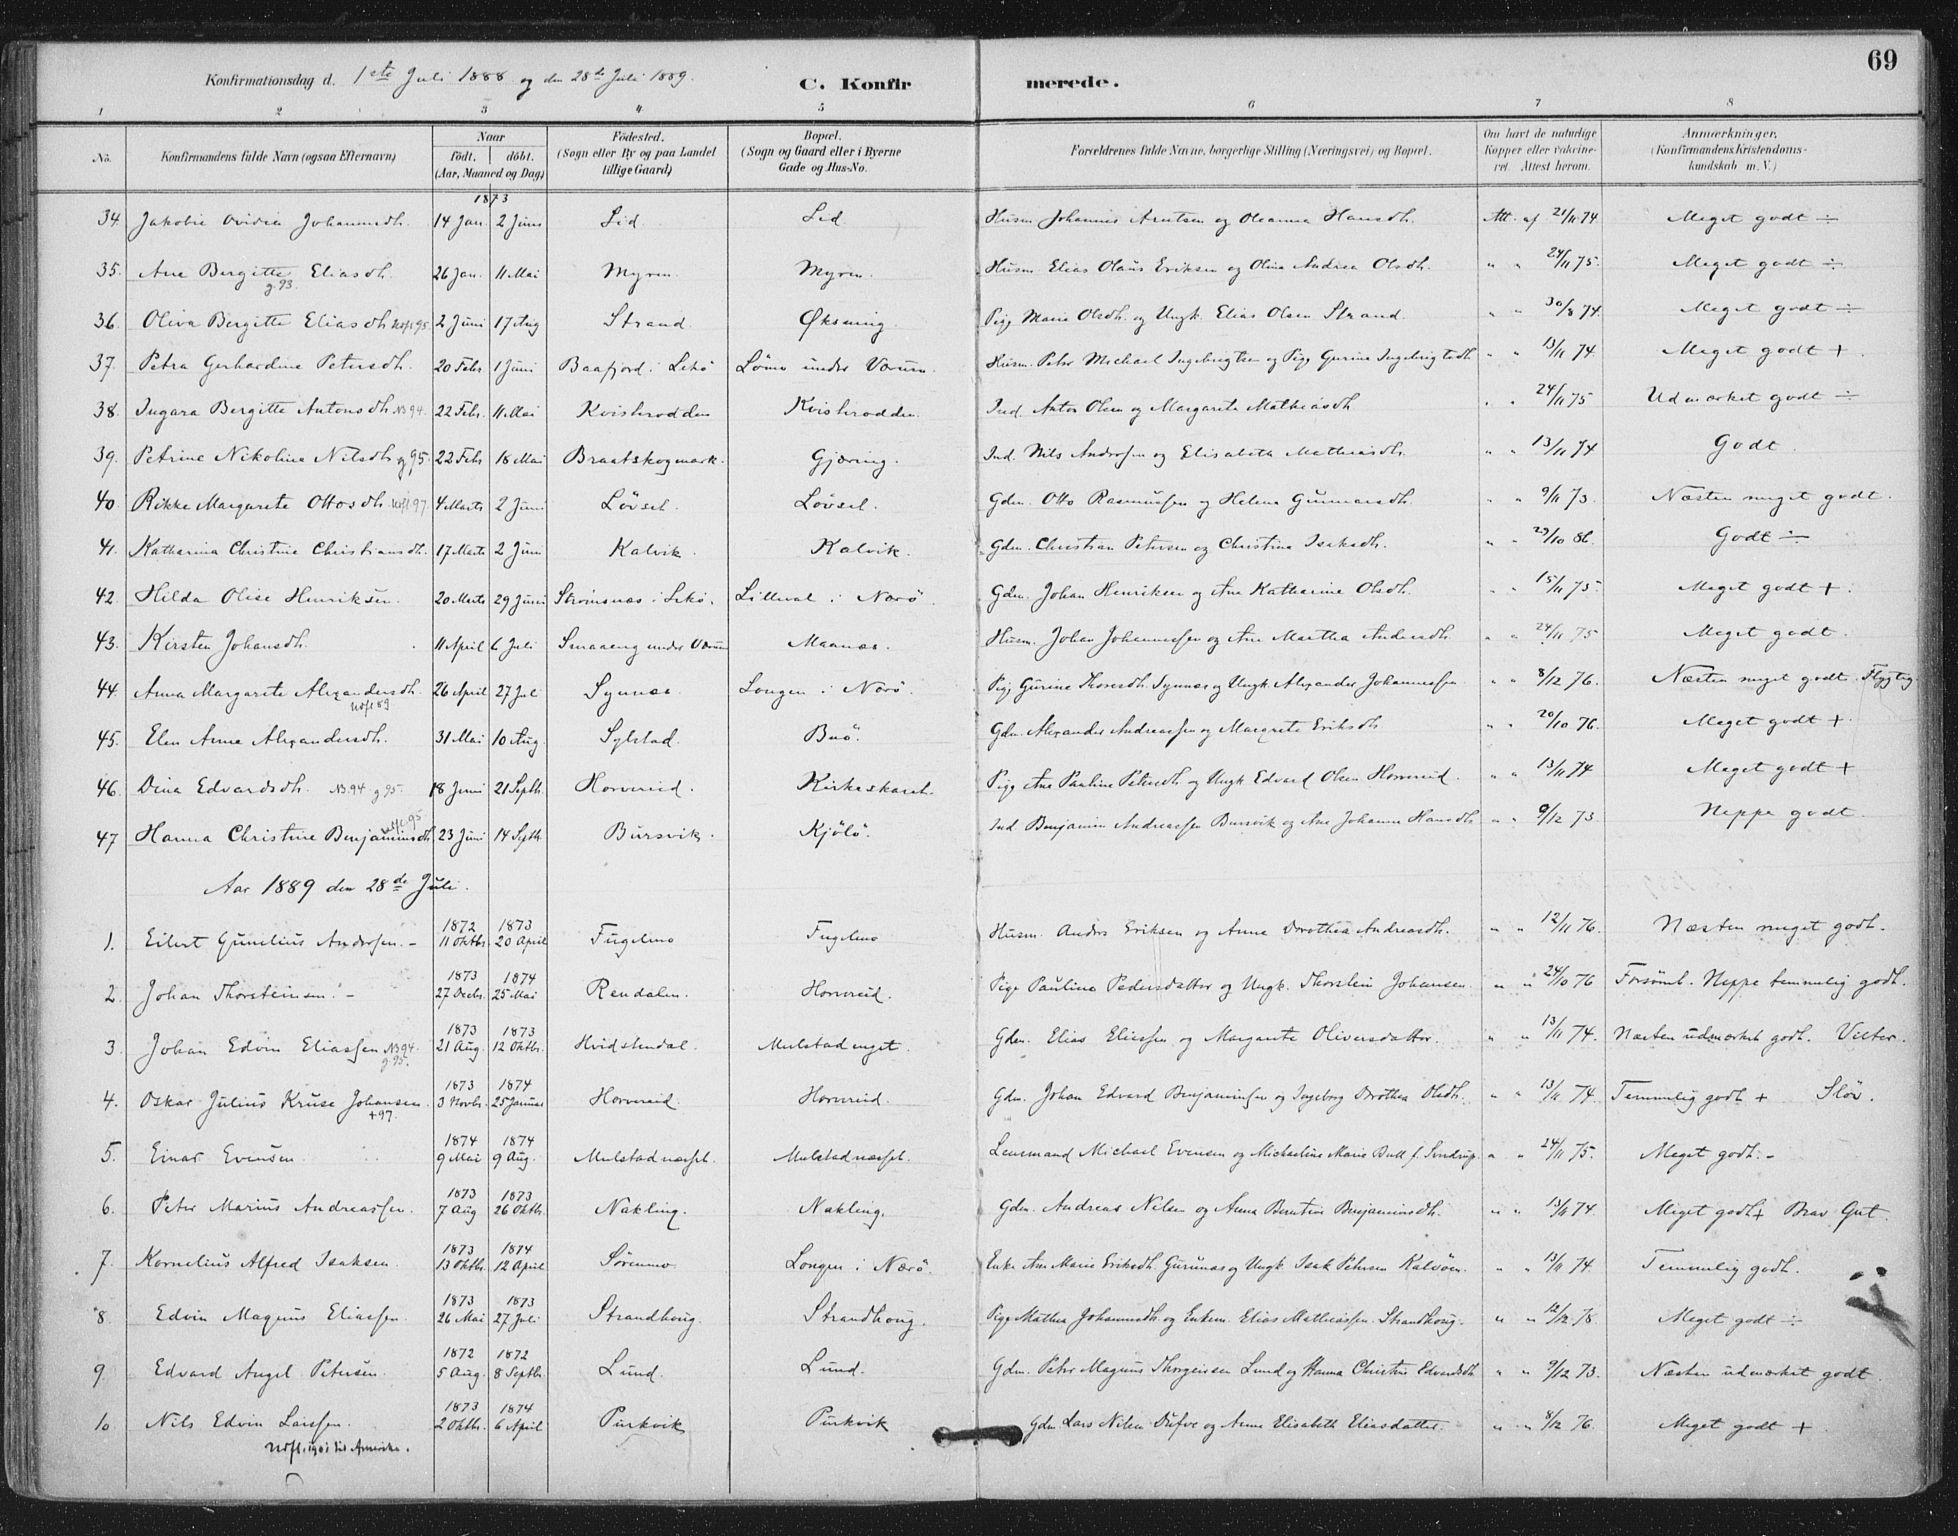 69
Konfirmationsdag d. 1ste Juli 1888 og den 28de Juli 1889. C. Konfirmerede.
1 2 3 4 5 6 7 8
No. Konfirmandens fulde Navn (ogsaa Efternavn) Naar født. døbt. (Aar, Maaned og Dag) Fødested. (Sogn eller By og paa Landet tillige Gaard) Bopæl. (Sogn og Gaard eller i Byerne Gade og Hus-No. Forældrenes fulde Navne, borgerlige Stilling (Næringsvei) og Bopæl. Om havt de naturlige Kopper eller vakcineret. Attest herom. Anmærkninger, (Konfirmandens Kristendomskundskab m. V.)
1873
34. Jakobie Ovidia Johannesdh. 14 Jan. 2 Juni Lid. Lid. Husm. Johannes Arntsen og Oleanna Hansdh. Att. af 21/11 74 Meget godt ÷
35. Ane Bergitte Eliasdh. 26 Jan. 11 Mai Myren. Myren. Husm. Elias Olaus Eriksen og Olina Andrea Olsdh. " " 24/11 75. Meget godt ÷
g. 93.
36. Oliva Bergitte Eliasdh. Udfl. 95. 2 Juni 17 Aug Strand. Øksning. Pige Marie Olsdh. og Ungk. Elias Olsen Strand. " " 30/8 74. Meget godt ÷
37. Petra Gerhardine Petersdh. 20 Febr. 1 Juni Baafjord i Lekø Lømo under Varum. Husm. Peter Michael Ingebrigtsen og Pige Gurine Ingebrigtsdh " " 13/11 74. Meget godt +
38. Ingara Bergitte Antonsdh. N3 94. 22 Febr. 11 Mai Kvistrodden Kvistrodden. Ind. Anton Olsen og Margarete Mathiasdh " " 24/11 75 Udmærket godt ÷
39. Petrine Nikoline Nilsdh. g 95. 22 Febr. 18 Mai Braatskogmark. Gjæring. Ind. Nils Andersen og Elisabeta Mathiasdh. " " 13/11 74 Godt.
40. Rikke Margarete Ottosdh. Udfl 97. 4 Marts 2 Juni Løvsel. Løvsel. Gdm. Otto Rasmussen og Helena Gunnarsdh. " " 9/11 73. Næsten meget godt.
41. Katharina Christine Christiansdh. 17 Marts 2 Juni Kalvik. Kalvik. Gdm. Christian Petersen og Christina Isaksdh. " " 29/10 86. Godt ÷
42. Hilda Olise Henriksen. 20 Marts 29 Juni Skrinsnas i Lekø. Lilleval i Nærø. Gdm. Johan Henriksen og Ane Katharine Olsdh. " " 15/11 75. Meget godt +.
43. Kirsten Johansdh. 11 April 6 Juli Smaaeng under Varum Maanas. Husm. Johan Johannessen og Ane Martha Andersdh. " " 24/11 75 Meget godt.
44. Anna Margarete Alexandersdh. 26 April 27 Jul Synnæs Longen i Nærø. Pige Gurine Thoresdh. Synnæs og Ungk. Alexander Johannessen " " 8/12 76. Næsten meget godt. Flygtig.
Udfl 89
45. Elen Anne Alexandersdh. 31 Mai 10 Aug. Sylstad. Buø. Gdm. Alexander Andreassen og Margrete Eriksdh " " 20/10 76. Meget godt +.
46. Dina Edvardsdh. N3 94 g 95. 18 Juni 21 Septb. Horvereid. Kirkeskaret. Pige Ane Pauline Petersdh. og Ungk. Edvard Olsen Horvereid. " " 13/11 74 Meget godt +
47 Hanna Christine Benjaminsdh. Udfl. 95 23 Juni 14 Septb. Bursvik. Kjølø. Ind Benjamin Andreassen Bursvik og Ane Johanna Hansdh " " 9/12 73. Neppe godt.
Aar 1889 den 28de Juli.
1. Eilert Gunelius Andersen. 1872 11 Oktbr. 1873 20 April Fuglemo Fuglemo Husm. Anders Eriksen og Anne Dorothea Andreasdh. " " 12/11 76. Næsten meget godt.
2. Johan Thorsteinsen. 1873 27 Decbr. 1874 25 Mai Rendalen. Horvereid. Pige Paulina Pedersdatter og Ungk. Thorstein Johansen. " " 24/10 76 Forsømt. Neppe temmelig godt.
3. Johan Edvin Eliassen N3 94. g 95. 1873 21 Aug. 1873 12 Oktbr. Hvidstendal. Mulstadenget. Gdm. Elias Eliassen og Margarete Oliversdatter. " " 13/11 74. Næsten udmærket godt.
4. Oskar Julius Kruse Johansen. 1873 3 Novbr. 1874 25 Januar Horvereid. Horvereid. Gdm. Johan Edvard Benjaminsen og Ingeborg Dorothea Olsdh. " " 13/11 74. Temmelig godt + Sløv.
+97
5. Einar Evensen 1874 9 Mai 1874 9 Aug. Mulstadnæsset. Mulstadnæsset. Lensmand Michael Evensen og Michaeline Marie Bull f. " " 24/11 75. Meget godt.
6. Peter Marius Andreassen. 1873 7 Aug 1873 26 Oktbr. Nakling. Nakling. Gdm. Andreas Nilsen og Anna Berntine Benjaminsdh. " " 13/11 74. Meget godt + Brav Gut.
7. Kornelius Alfred Isaksen. 1873 13 Oktbr. 1874 12 April Sørenmo Longen i Nærø. Enke Ane Marie Eriksdh. og Ungk. Isak Petersen Kalvøen. " " 13/11 74. Temmelig godt.
8. Edvin Magnus Eliassen. 1873 26 Mai 1873 27 Juli Strandhoug. Strandhoug. Pige Mathea Johannesdh. og Enkem. Elias Mathiassen Strandhoug. " " 12/12 78. Meget godt ÷
9 Edvard Angel Petersen. 1872 5 Aug. 1872 8 Septbr. Lund. Lund. Gdm. Peter Magnus Thorgersen Lund og Hanna Christine Edvardsdh " " 9/12 73. Næsten udmærket godt.
10 Nils Edvin Larssen. 1873 2 Oktbr. 1874 6 April Purkvik Purkvik Gdm Lars Nilsen og Anne Elisabeth Eliasdatter. " " 8/12 76. Meget godt +
Udfl. 1901 til Amerika.